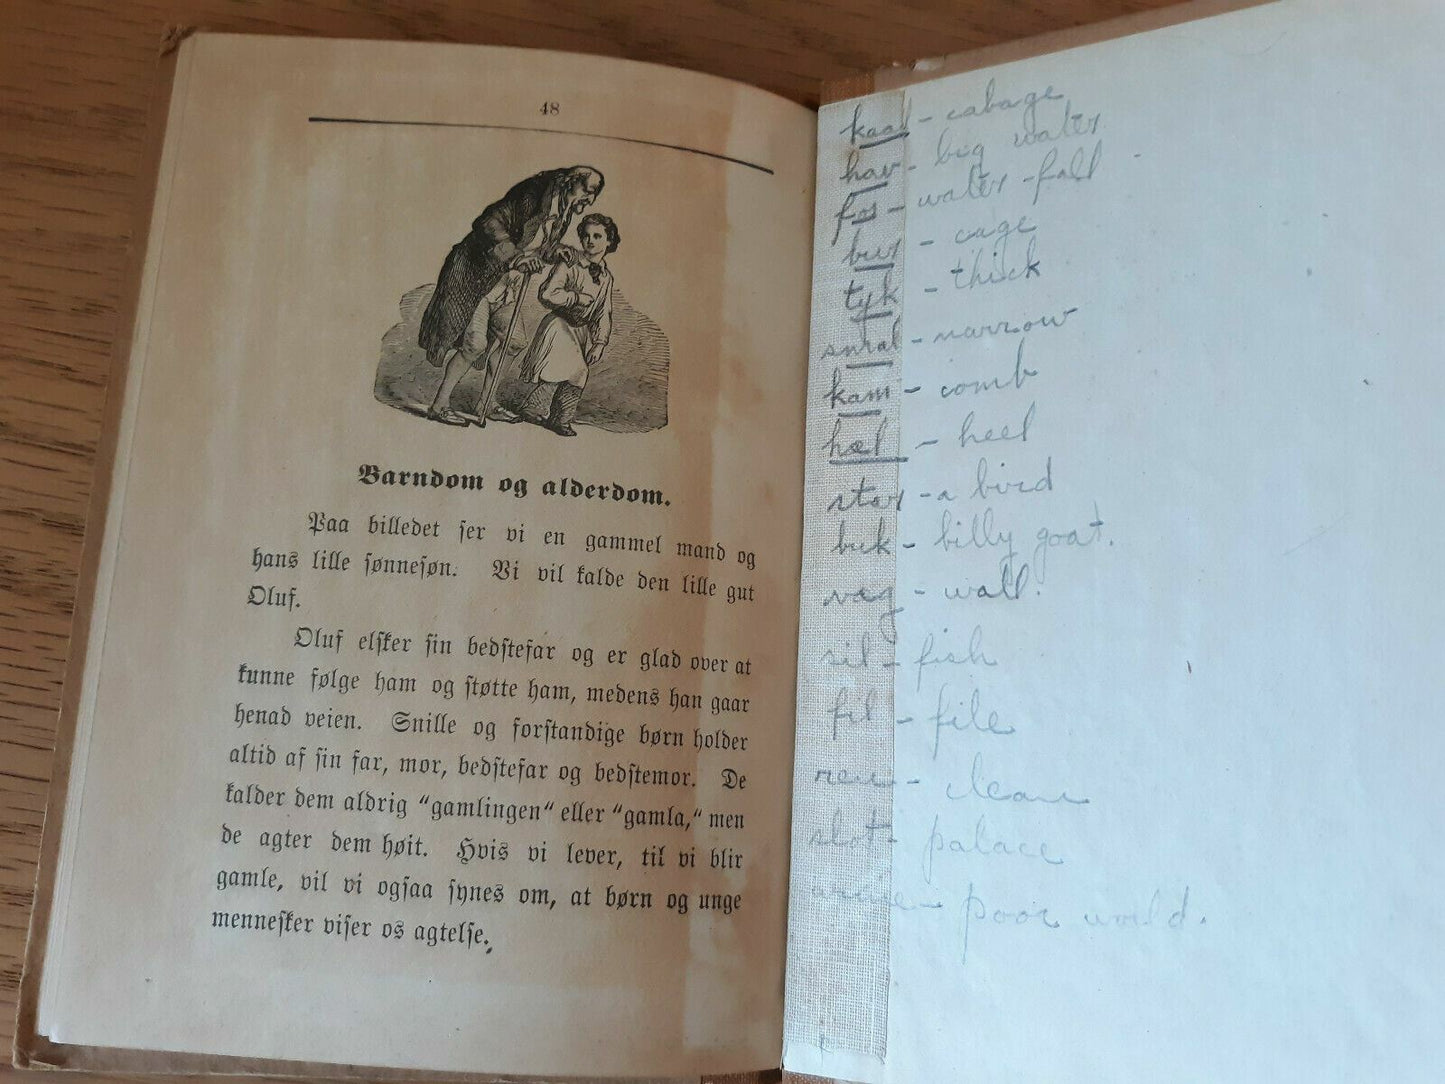 48
Barndom og alderdom.
Paa billedet ser vi en gammel mand og
hans lille sønnesøn. Vi vil kalde den lille gut
Oluf.
Oluf elsker sin bedstefar og er glad over at
kunne følge ham og støtte ham, medens han gaar
henad veien. Snille og forstandige børn holder
altid af sin far, mor, bedstefar og bedstemor. De
kalder dem aldrig "gamlingen" eller "gamla," men
de agter dem høit. Hvis vi lever, til vi blir
gamle, vil vi ogsaa synes om, at børn og unge
mennesker viser os agtelse.
kaal - cabage
hav - big water
fos - water-fall
bur - cage
tyk - thick
smal - narrow
kam - comb
hæl - heel
stær - a bird
buk - billy goat.
væg - wall.
sil - fish
fil - file
ren - clean
slot - palace
- poor world.